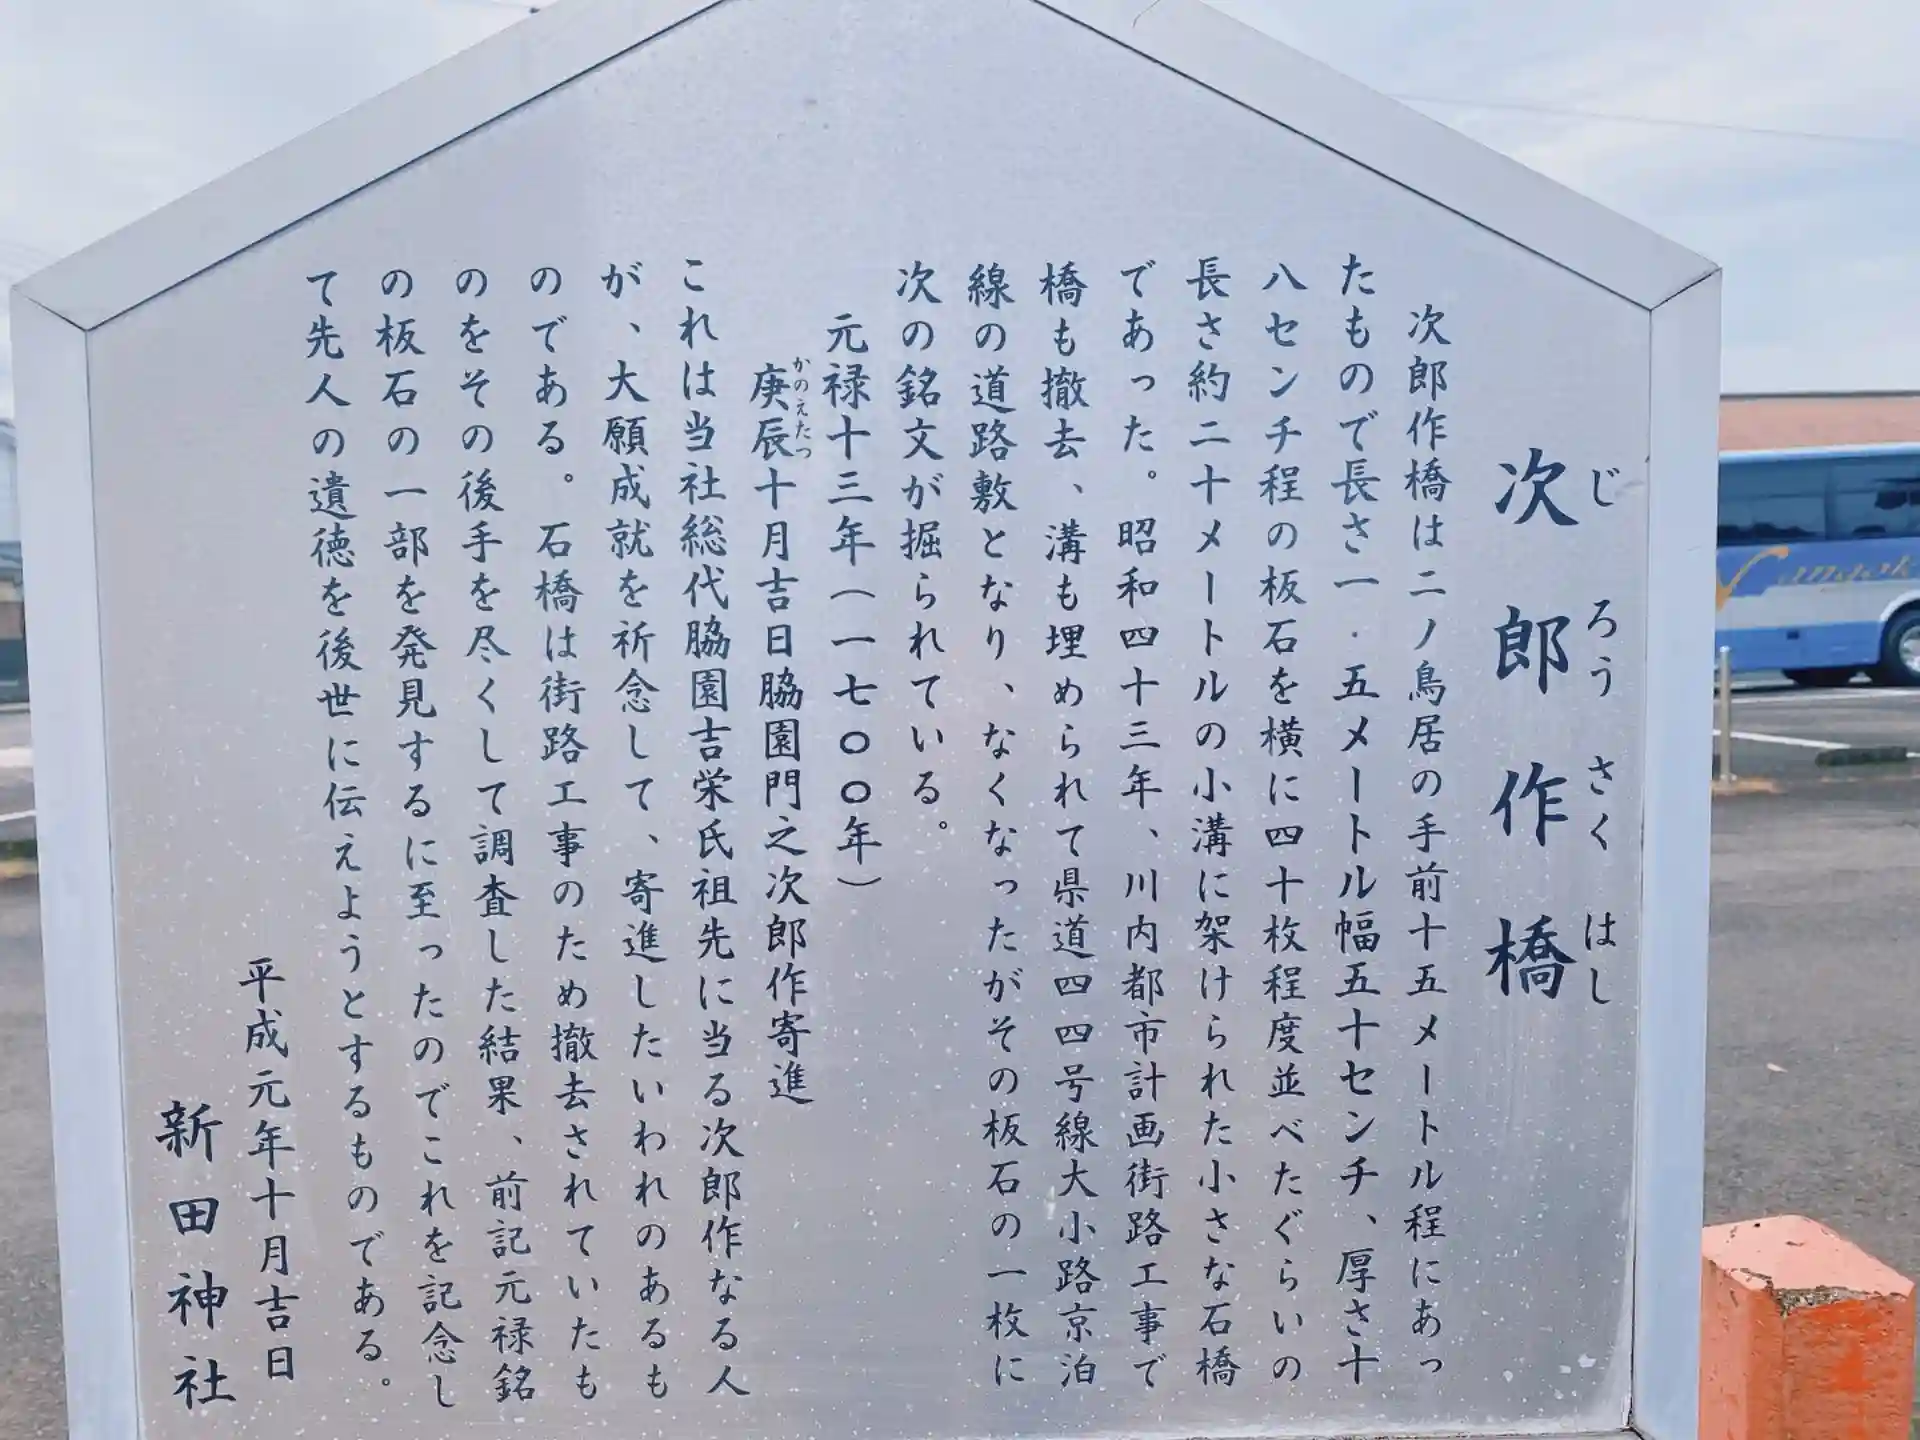 次郎作橋
じろうさくはし
次郎作橋は二ノ鳥居の手前十五メートル程にあっ
たもので長さ一・五メートル幅五十センチ、厚さ十
八センチ程の板石を横に四十枚程度並べたぐらいの
長さ約二十メートルの小溝に架けられた小さな石橋
であった。昭和四十三年、川内都市計画街路工事で
橋も撤去、溝も埋められて県道四四号線大小路京泊
線の道路敷となり、なくなったがその板石の一枚に
次の銘文が掘られている。
元禄十三年(一七〇〇年)
かのえたつ
庚辰十月吉日脇園門之次郎作寄進
これは当社総代脇園吉栄氏祖先に当る次郎作なる人
が、大願成就を祈念して、寄進したいわれのあるも
のである。石橋は街路工事のため撤去されていたも
のをその後手を尽くして調査した結果、前記元禄銘
の板石の一部を発見するに至ったのでこれを記念し
て先人の遺徳を後世に伝えようとするものである。
平成元年十月吉日
新田神社